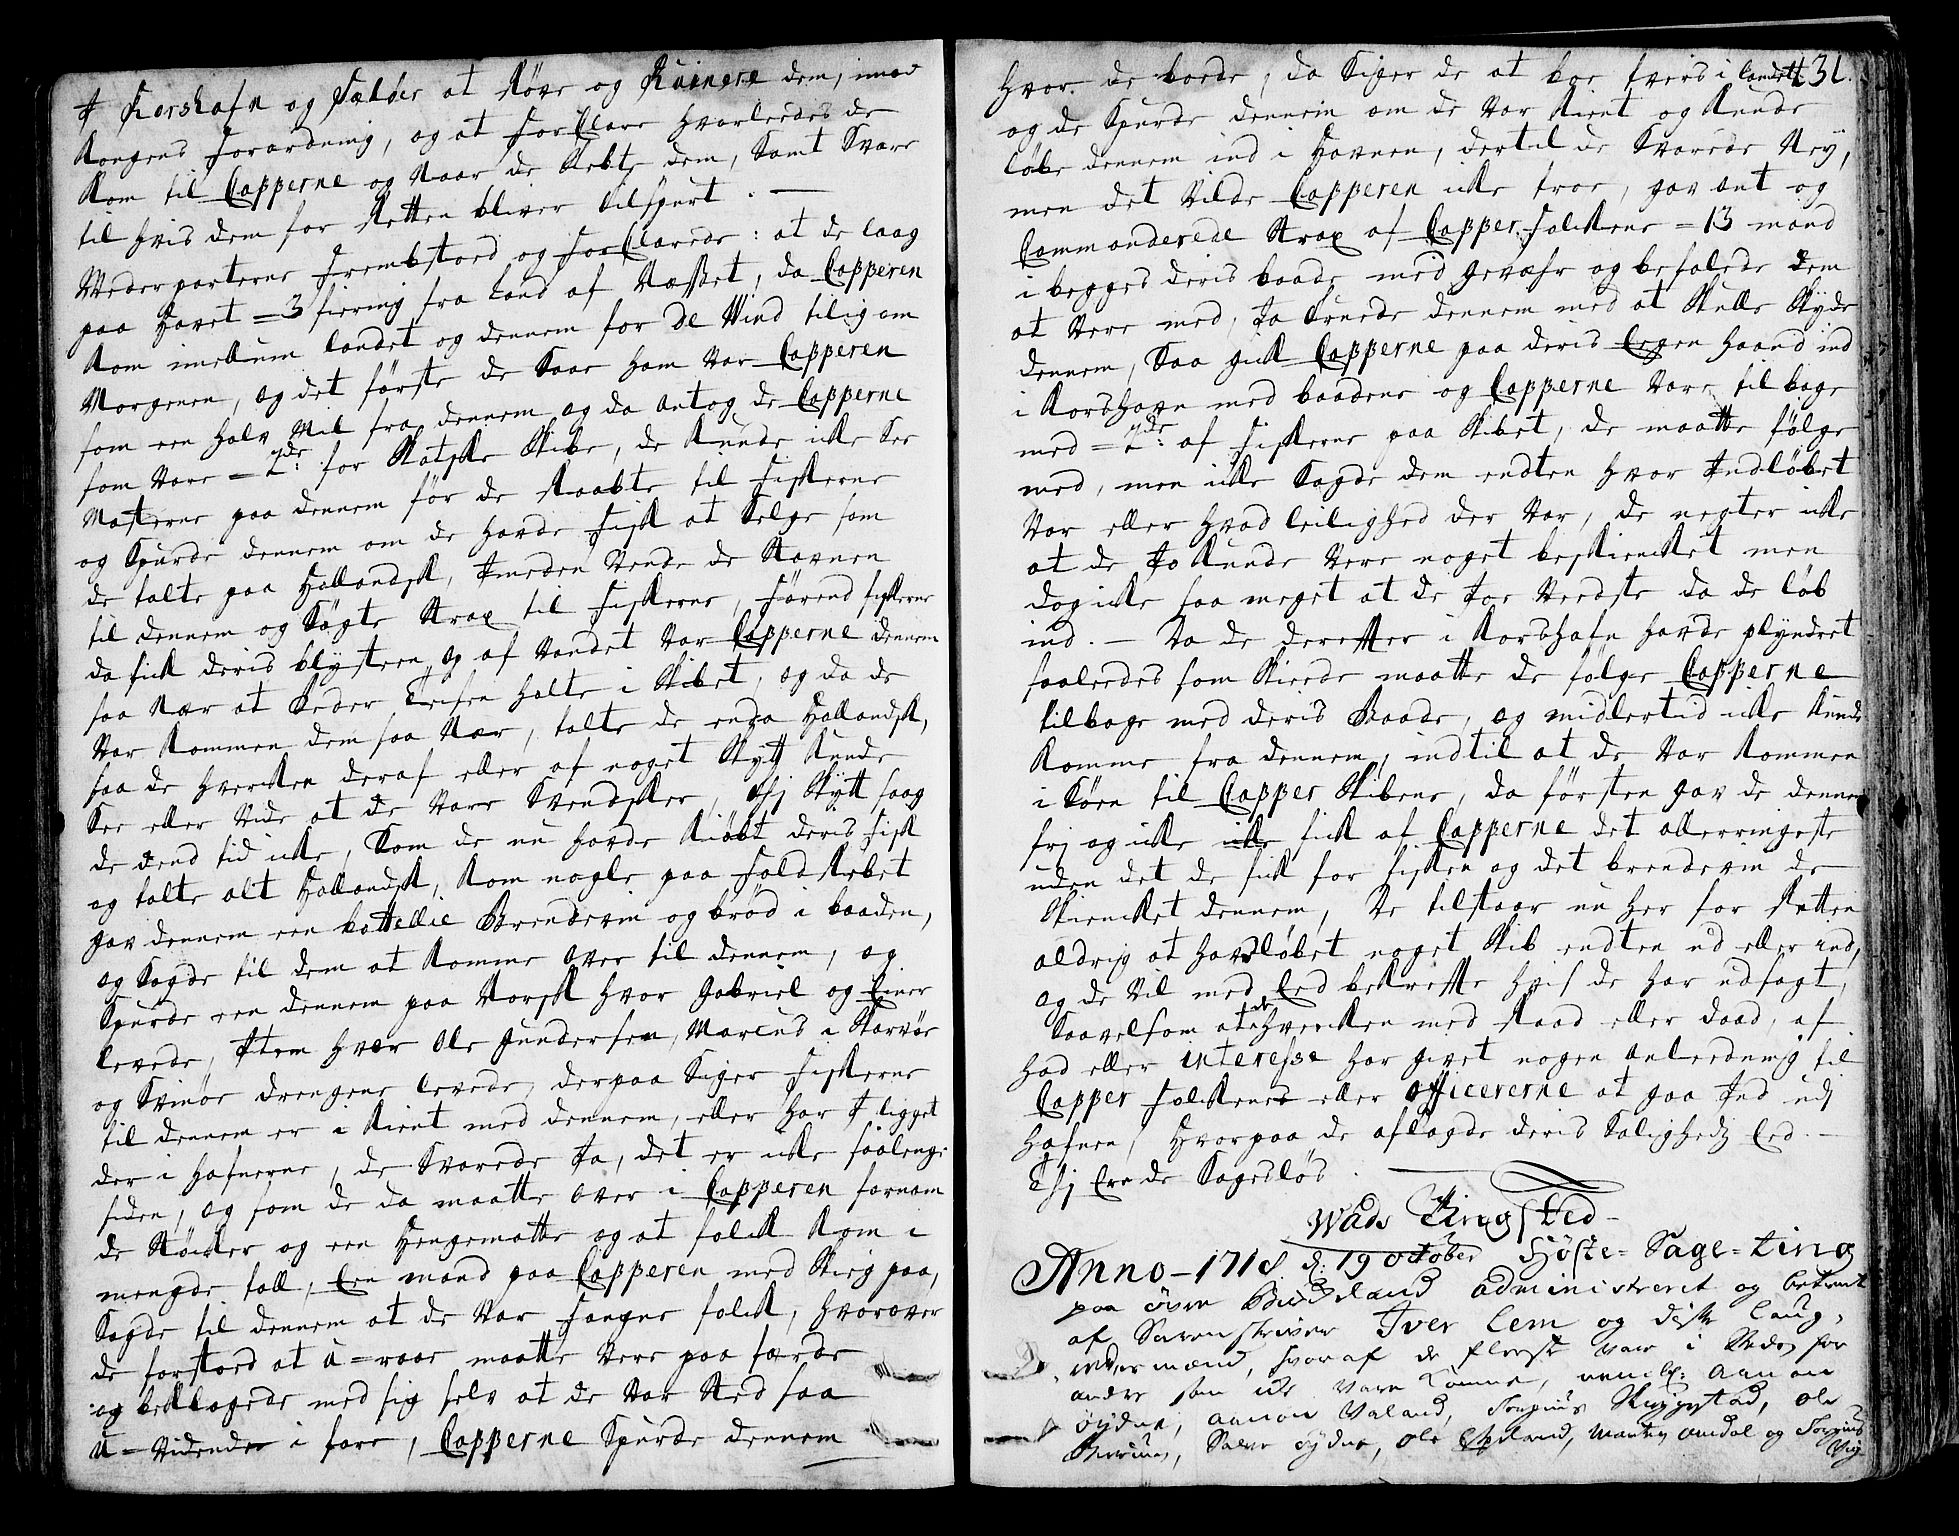 I Korshafn og Sælder at Røve og Ruinere dem, imod
Kongens Forordning, og at ForClare hvorledes de
kom til Capperne og Naar de slebte dem, samt svare
til hvis dem for Retten bliver tilspurt. —
Wederparterne frembstoed og ForClarede: at de laag
paa Havet = 3 fiering fra Land af Næsset, da Capperen
kom imellum landet og dennem for de Wind tilig om
Morgenen, og det første de saae ham var Capperen
som een halv Mil fra dennem og da antog de Capperne
som vare = 2de: for Skotske Skibe, de kunde icke see
Masterne paa dennem før de raabte til Fiskerne
og spurde dennem om de hafde Fisk at selge som
de talte paa Hollandsk, imeden vende de Stavnen
til dennem og søgte strax til Fiskerne, førend fiskerne
da fick deris blysteen op af Vandet var Capperne dennem
saa nær at Peder Erifsen halte i Skibet, og da de
var kommen dem saa nær, talte de enda Hollandsk,
saa de hvercken deraf eller af noget Flagg kunde
see eller vide at de vare Svendsker, thj Flagg saag
de dend tid icke, som de nu hafde kiøbt deris Fisk
og talte alt Hollandsk, kom nogle paa Falderebet
gav dennem een bottellie Brendevin og brød i baaden,
og sagde til dem at komme over til dennem, og
spurde een dennem paa Norsk hvor Gabriel og Einer
levede, Item hvor Ole Gundersen, Marcus i Skarvøe
og Svinøe drengene levede, derpaa siger Fiskerne
til dennem er i kient med dennem, eller har I ligget
der i hafnerne, de svarede Ja, det er icke saalenge
siden, og som de da maatte over i Capperen fornam
de Støcker og een Hengematte og at folck kom i
mengde tall, Een mand paa Capperen med skieg paa,
sagde til dennem at de var Fangne folck, hvorover
de forstoed at u=raad maatte være paa færde
og beklagede med sig selv at de var Ked saa
u=vidende i fare, Capperne spurde dennem
431.
hvor de boede, da siger de at boe tvers i landet
og de spurde dennem om de var kient og kunde
løbe dennem ind i Havnen, dertil de svarede Ney,
men det vilde Capperen icke troe, gav ent og
Commanderede strax af Capper folckene = 13 mand
i begges deris baade med gevæhr og befalede dem
at være med, Ja truede dennem med at skulle skyde
dennem, saa gick Capperne paa deris Eegen haand ind
i Korshavn med baadene og Capperne vare tilbage
med = 2de: af Fiskerne paa Skibet, de maatte følge
med, men icke sagde dem endten hvor Indløbet
var eller hvad leilighed der var, de negter icke
at de Jo kunde være noget beskiencket men
dog icke saa meget at de Joe veedste da de løb
ind. — Da de derefter i Korshafn hafde plyndret
saaledes som skiede maatte de følge Capperne
tilbage med deris Baade, og midlertid icke kunde
komme fra dennem, indtil at de var kommen
i Søen til Capper Skibene, da førsten gav de dennem
frj og icke fick af Capperne det allerringeste
uden det de fick for fisken og det brendevin de
skiencket dennem, De tilstaar nu her for Retten
aldrig at hafve løbet noget Skib endten ud eller ind,
og de vil med Eed bekrefte hvis de har udsagt,
saavelsom at de hvercken med Raad eller daad, af
had eller interesse har givet nogen anleedning til
Capper folckene eller officererne at gaa Ind udj
hafnen, Hvorpaa de aflagde deris saligheds Eed. —
Thj Ere de Sagesløs.
Wads Tingsted
Anno — 1718 d: 19 october Høste = Sage = Ting
paa øvre administreret og betient
af Sorenskriver Iver Lem og diste Laug,
rettes mænd, hvoraf de fleeste vare i Steden for
andre som icke vare komne, nemlig: Aanon
øydne, Aanon Valand, ole
Salve øydne, ole og